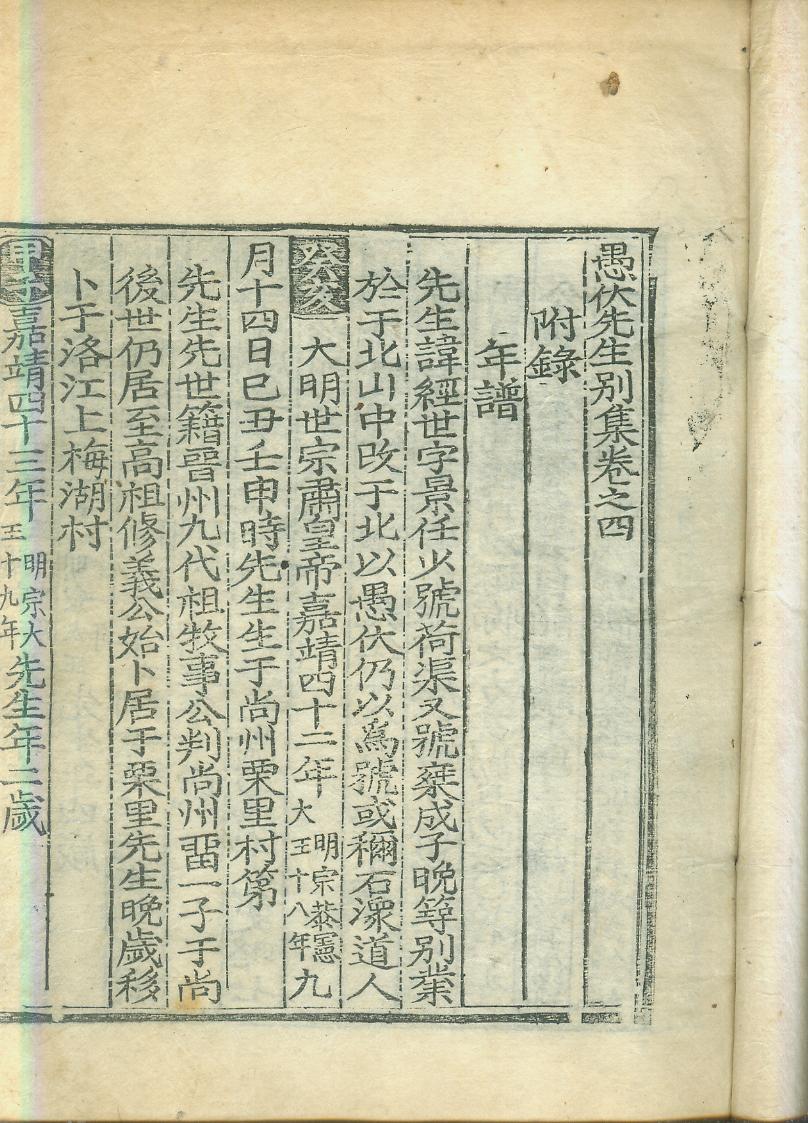 愚伏先生別集卷之四
附錄
年譜
先生諱經世字景任少號荷渠又號棄成子晚築別業
於于北山中改于北以愚伏仍以爲號或稱石潨道人
癸亥 大明世宗肅皇帝嘉靖四十二年明宗恭憲大王十八年九
月十四日己丑壬申時先生生于尚州栗里村第
先生先世籍晉州九代祖牧事公判尚州留一子于尚
後世仍居至高祖修義公始卜居于栗里先生晚歲移
卜于洛江上梅湖村
甲子嘉靖四十三年明宗大王十九年先生年二歲